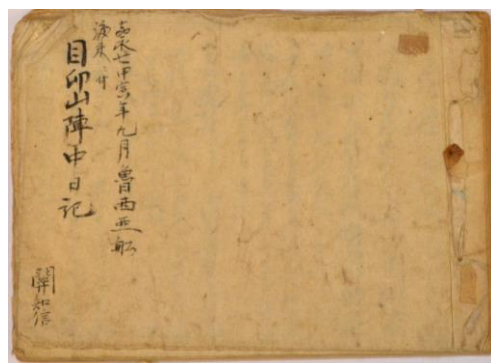 嘉永七甲寅年九月魯西亜船
渡来ニ付
目印山陣中日記
關知信